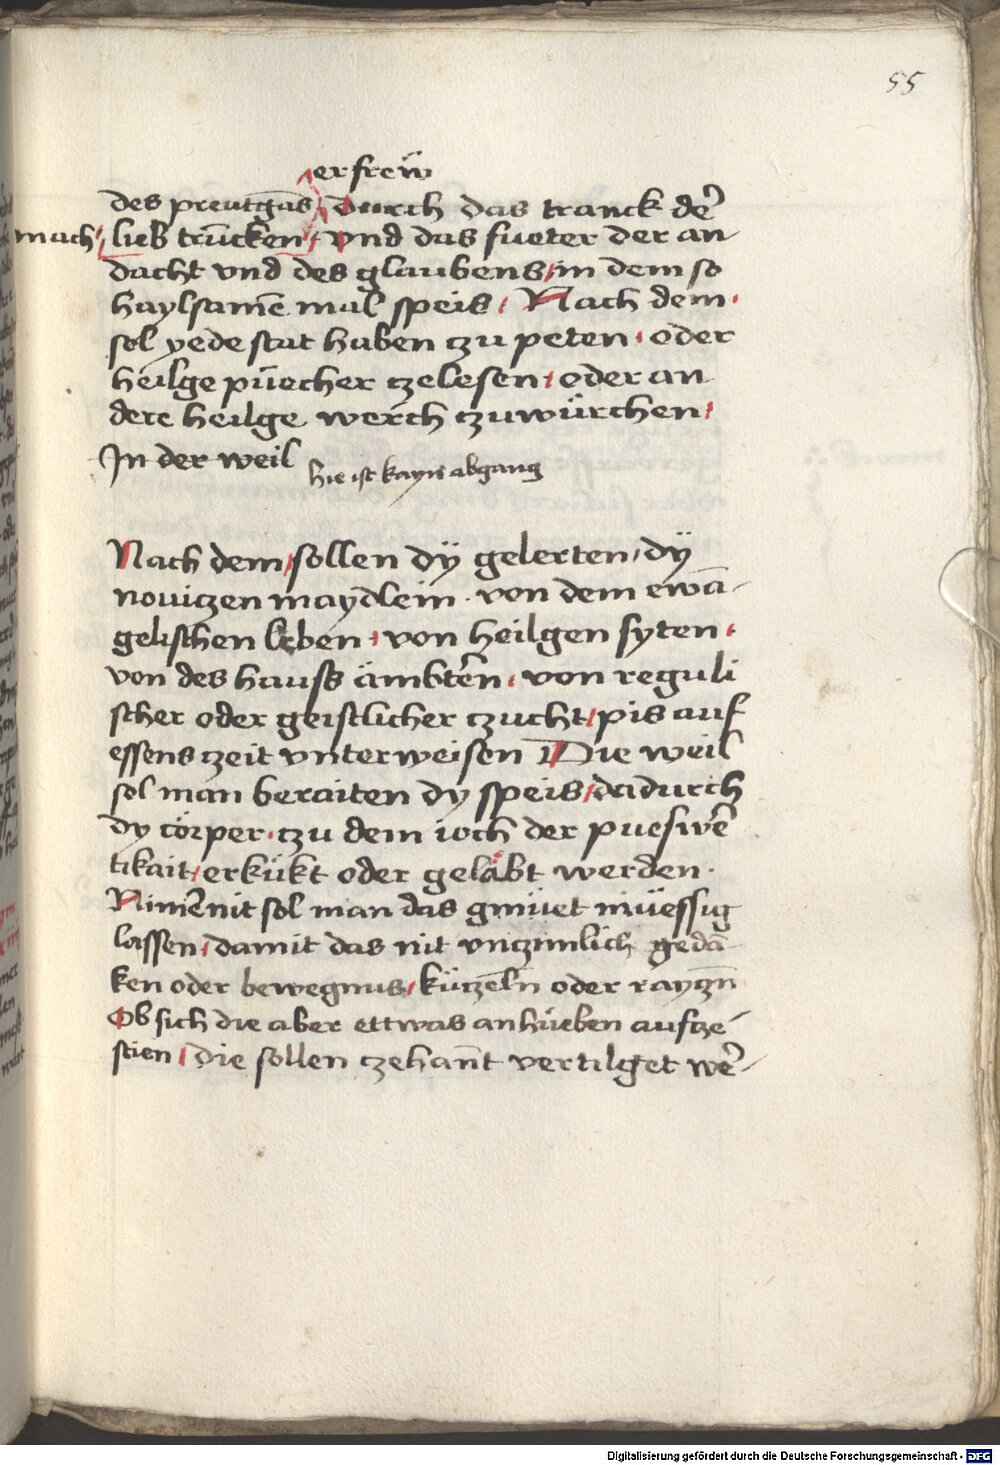 55
erfreẅ
des preutgās / durch das tranck de᷑
mach / lieb trūcken / vnd das fueter der an
dacht vnd des glaubens / in dem so
haylsamē mal speis / Nach dem /
sol yede stat haben czu peten / oder
heilge püecher czelesen / oder an
dere heilge werch czuwürchen /
In der weil
hie ist kayn abgang
Nach dem / sollen dÿ gelerten / dÿ
nouiczen maydlein · von dem ewā-
gelischen leben / von heilgen syten /
von des hauss ämbtērn / von reguli
scher oder geistlicher czucht / pis auf
essens czeit vnterweisen Die weil
sol man beraiten dy speis / dadurch
dy cörper · czu dem ioch der pueswe᷑
tikait / erkükt oder geläbt werden ·
Nimēnit sol man das gmüet müessig
lassen / damit das nit vnczimlich gedā-
ken oder bewegnus / küczēln oder rayczn̄
Ob sich die aber ettwas anhüeben aufcze
stien / die sollen czehan̄t vertilget we᷑-
Digitalisierung gefördert durch die Deutsche Forschungsgemeinschaft - DFG